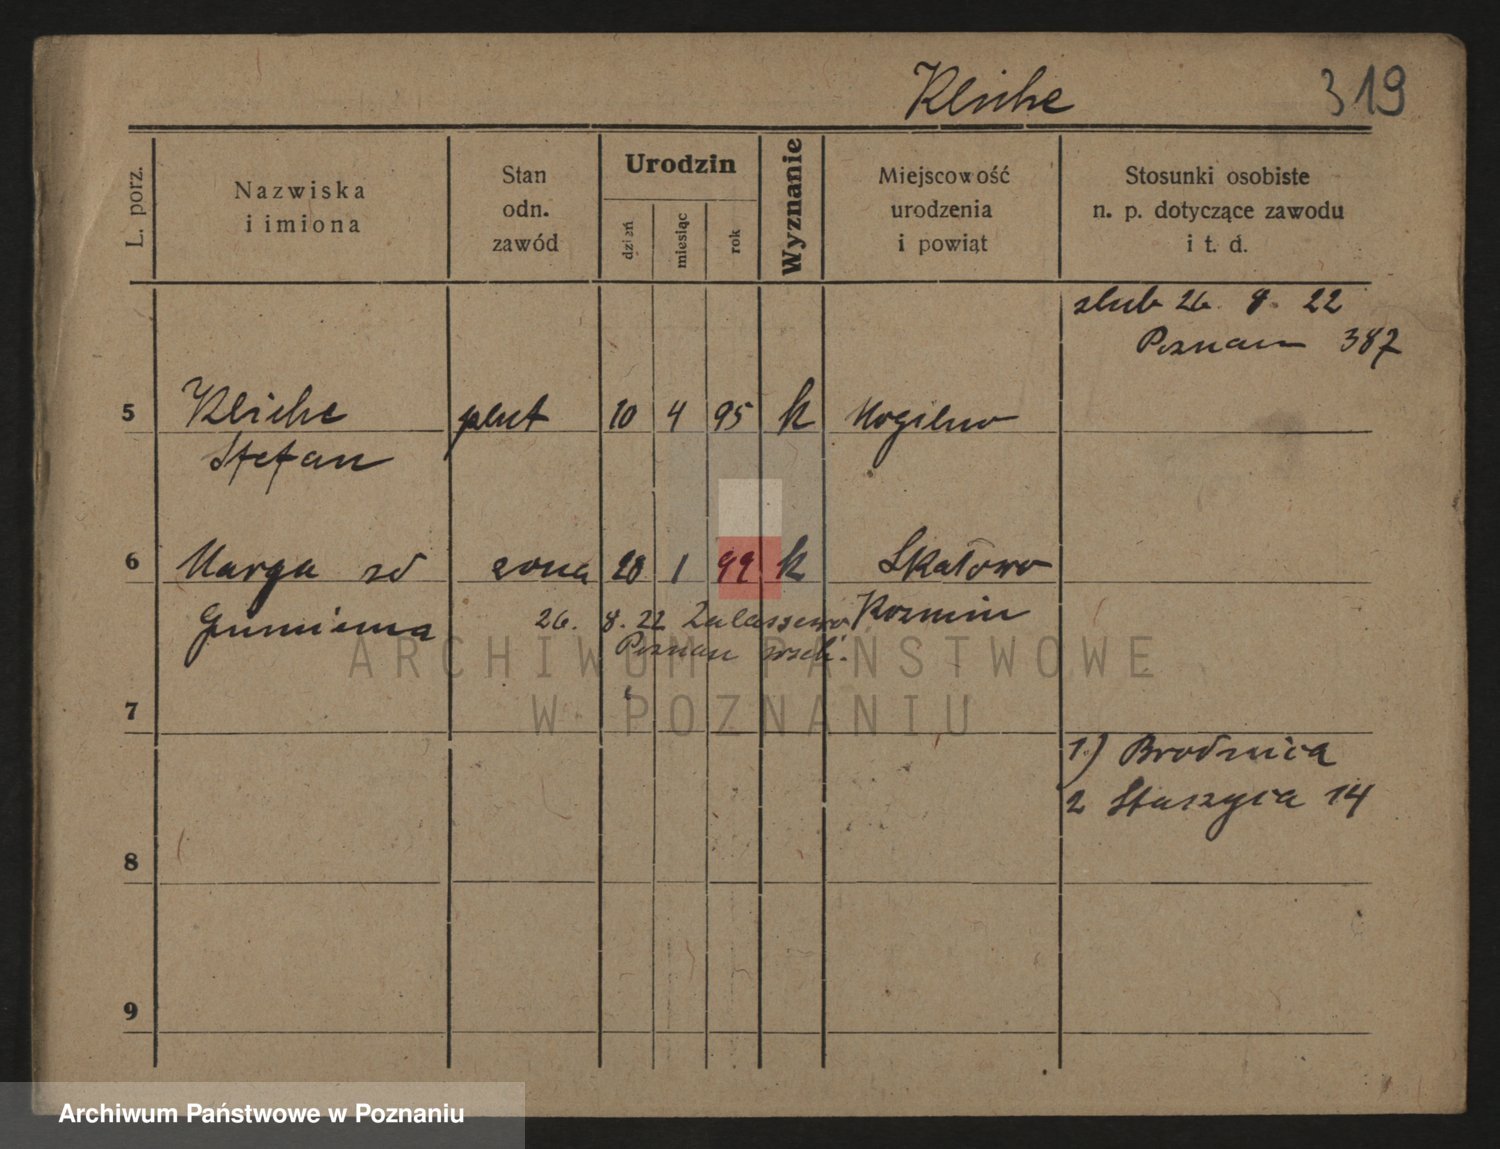 Kliche 319
L. porz.
Nazwiska
i imiona
Stan
odn.
zawód
Urodzin
dzień
miesiąc
rok
Wyznanie
Miejscowość
urodzenia
i powiąt
Stosunki osobiste
n. p. dotyczące zawodu
i t. d.
slub 26. 8. 22
Poznan 387
5 Kliche plut 10 4 95 k Mogilno
Stefan
6 Marga zona 20 1 99 k Skałowo
26. 8. 22 Kozmin
Poznan
7
1) Brodnica
2 Staszyca 14
8
9
ARCHIWUM PAŃSTWOWE
W POZNANIU
Archiwum Państwowe w Poznaniu